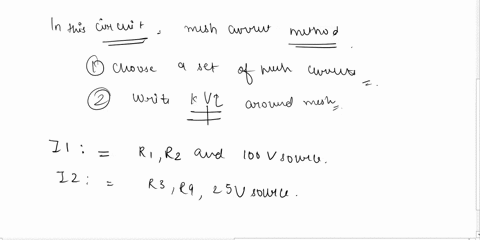 In this circuit, mesh current method.
① choose a set of mesh currents.
② write KVL around mesh.
I1 : = R1, R2 and 100 V source.
I2 : = R3, R4, 25 V source.